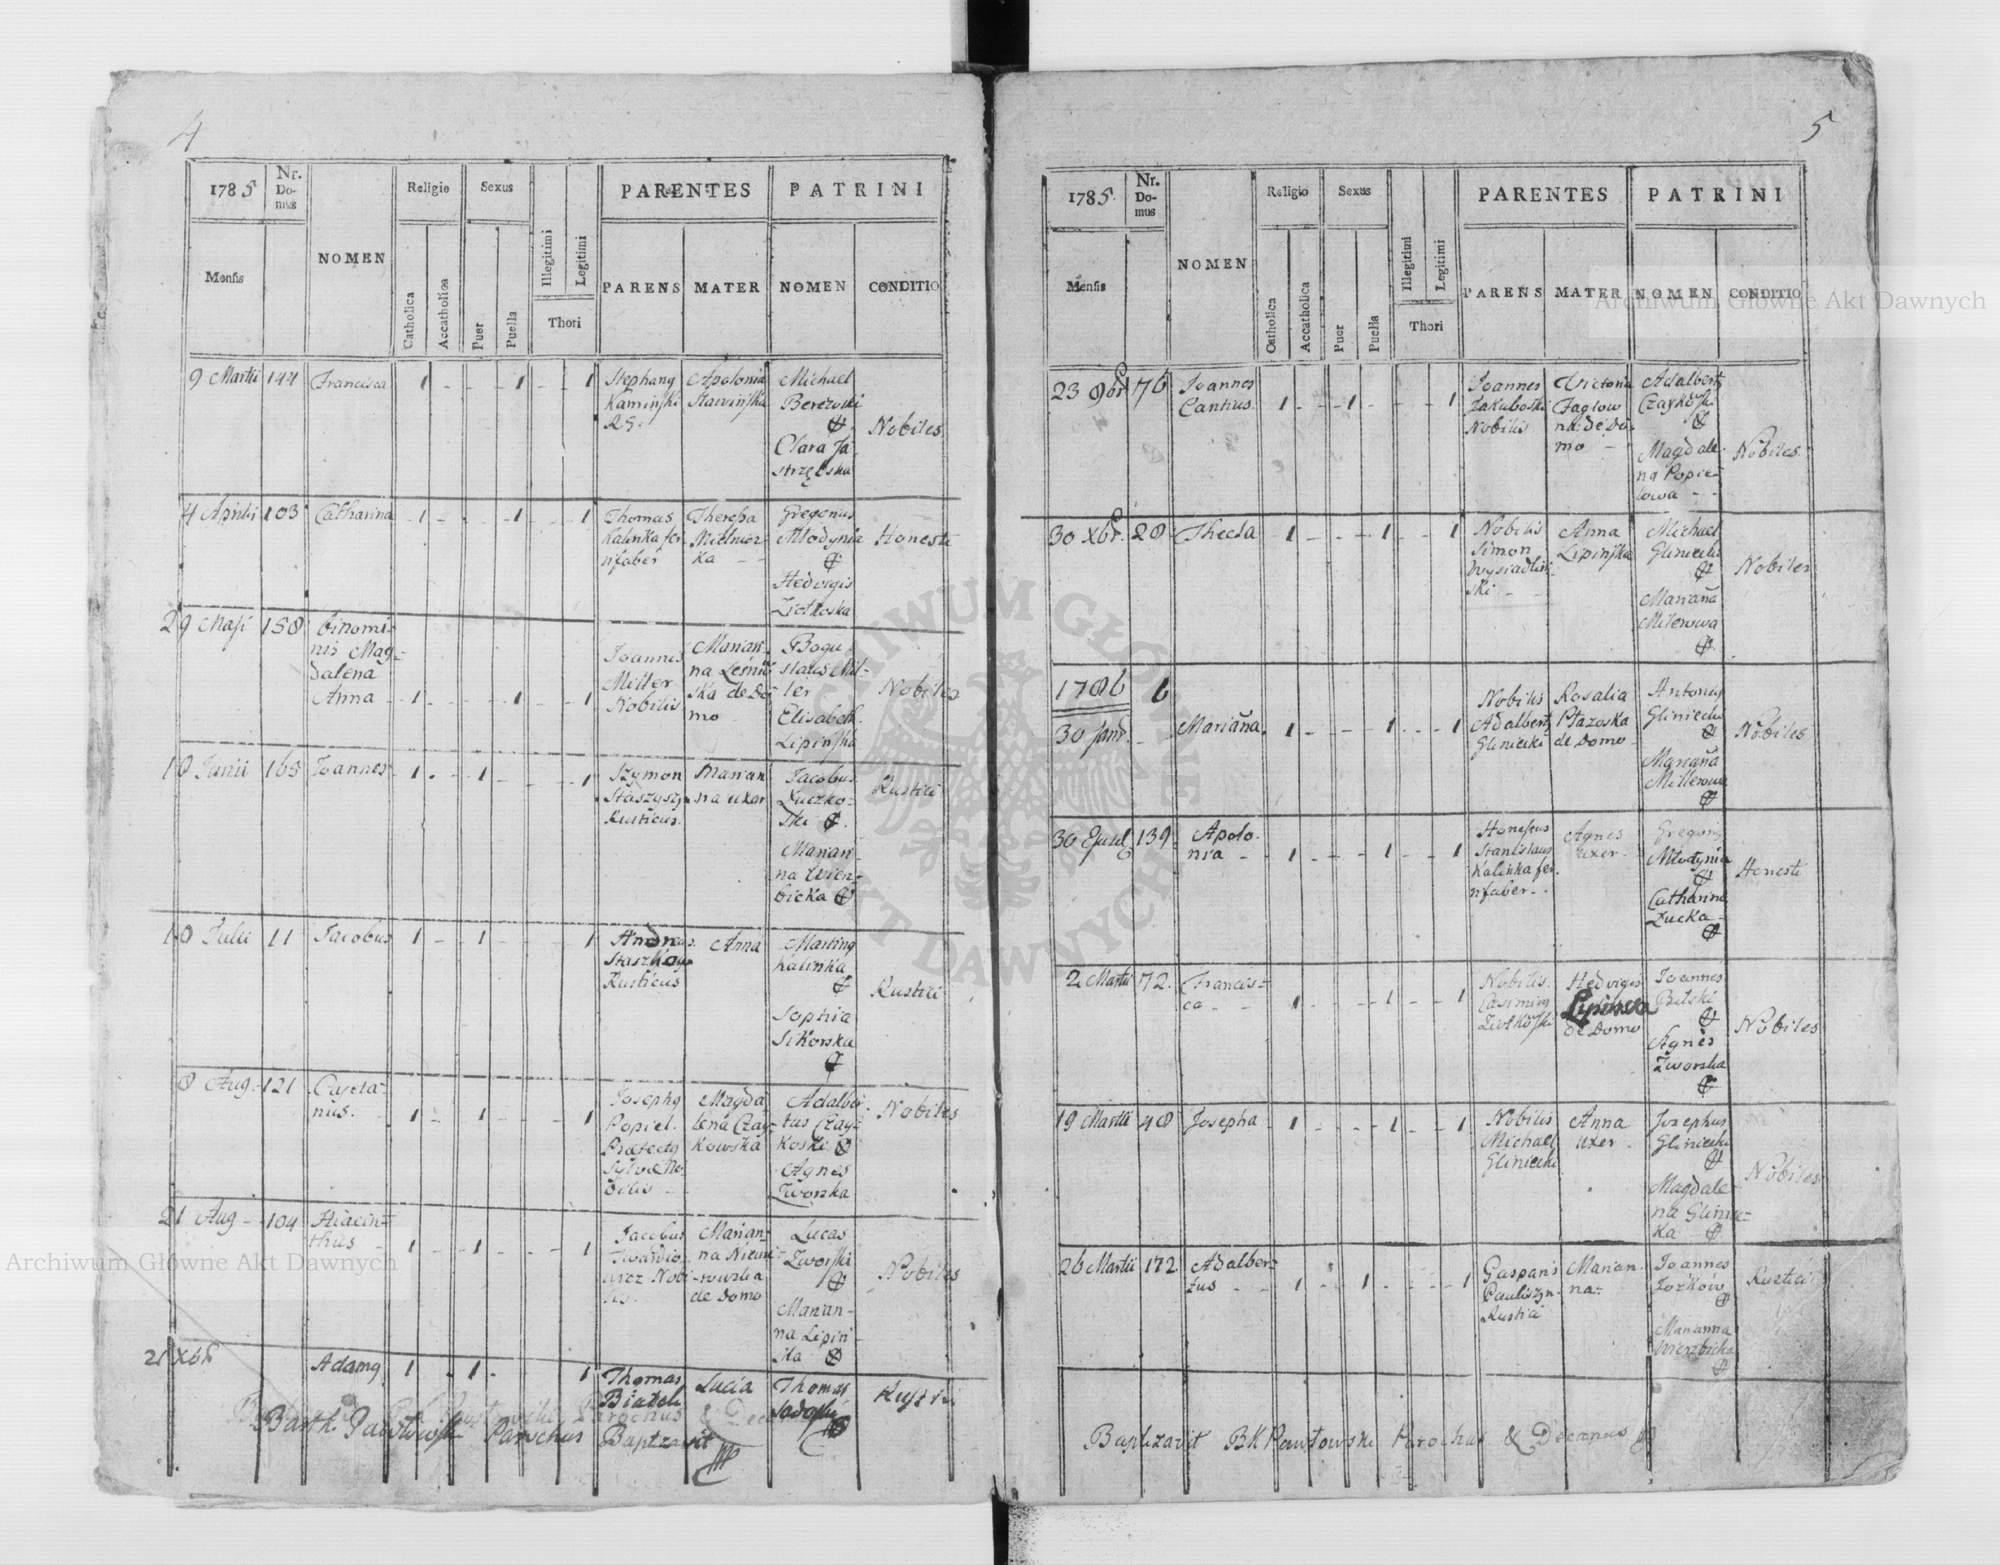 4
1785
Nr. Do- mus
NOMEN
Religio
Sexus
Illegitimi
Legitimi
PARENTES
PATRINI
Mensis
Catholica
Accatholica
Puer
Puella
Thori
PARENS
MATER
NOMEN
CONDITIO
9 Martii 144 Francisca 1 - - - 1 - 1
Stephanq
Kamińſki
Apolonia
Michael
Berezoski
Clara Ja-
strzębska
Nobiles
4 Aprilis 103 Catharina 1 - - - 1 - 1
Thomas
Kalinka fer-
rifaber
Theresa
Mielnicz-
ka
Gregorius
Młodynia
Hedvigis
Ziołkoska
Honesti
29 Maji 158 binomi-
nis Mag-
dalena
Anna 1 - - - 1 - 1
Joannes
Miller
Nobilis
Marian-
na
de Do-
mo
Bogu-
slaus Mil-
ler
Elisabeth
Lipińſka
Nobiles
10 Junii 165 Joannes 1 - - 1 - - 1
Szymon
Staszysz
Rusticus
Marian-
na uxor
Jacobus
Łuczko-
ski
Marian-
na Wierz-
bicka
Rustici
10 Julii 11 Jacobus 1 - - 1 - - 1
Andreas
Staszków
Rusticus
Anna
Martinq
Kalinka
Sophia
Sikorska
Rustici
8 Aug. 121 Cajeta-
nus 1 - - 1 - - 1
Josephq
Popiel
Præfectq
Sylvæ No-
bilis
Magda-
lena Czay-
kowska
Adalber-
tus Czay-
koski
Agnes
Zworska
Nobiles
21 Aug 104 Hiacin-
thus 1 - - 1 - - 1
Jacobus
Twardo-
wicz Nobi-
lis
Marian-
na
de Domo
Lucas
Zworſki
Marian-
na Lipiń-
ska
Nobiles
21 Xbr Adamq 1 - - 1 - - 1
Thomas
Białek
Lucia
Thomas
Sadoſki
Rustici
Barth. Pawłowski Parochus Baptizavit
5
1785
Nr. Do- mus
NOMEN
Religio
Sexus
Illegitimi
Legitimi
PARENTES
PATRINI
Mensis
Catholica
Accatholica
Puer
Puella
Thori
PARENS
MATER
NOMEN
CONDITIO
23 9br 76 Joannes
Cantius 1 - - 1 - - 1
Joannes
Jakuboski
Nobilis
Victoria
de Do-
mo
Adalbert
Czaykoſki
Magdale-
na Popie-
lowa
Nobiles
30 Xbr 28 Thecla 1 - - - 1 - 1
Nobilis
Simon
Wysiadliń-
ski
Anna
Lipińſka
Michael
Gliniecki
Mariaña
Milerowa
Nobiles
1786 6
30 Janr. Mariaña 1 - - - 1 - 1
Nobilis
Adalbertq
Gliniecki
Rosalia
Płazoska
de Domo
Antonius
Gliniecki
Mariaña
Millerowa
Nobiles
30 Ejusd 139 Apolo-
nia 1 - - - 1 - 1
Honestus
Stanislaus
Kalinka fer-
rifaber
Agnes
Uxor
Gregoriq
Młodynia
Catharina
Łucka
Honesti
2 Martii 72 Francis-
ca 1 - - - 1 - 1
Nobilis
Casimirq
Ziołkoſki
Hedvigis
Lipinska
de Domo
Joannes
Bilski
Agnes
Zworska
Nobiles
19 Martii 48 Josepha 1 - - - 1 - 1
Nobilis
Michael
Gliniecki
Anna
Uxor
Josephus
Gliniecki
Magdale-
na Glinie-
ka
Nobiles
26 Martii 172 Adalber-
tus 1 - - 1 - - 1
Gasparis
Pauliszyn
Rustici
Marian-
na
Joannes
Marianna
Wierzbicka
Rustici
Baptizavit BK Pawłowski Parochus & Decanus
Archiwum Główne Akt Dawnych
Archiwum Główne Akt Dawnych
ARCHIWUM GŁÓWNE AKT DAWNYCH